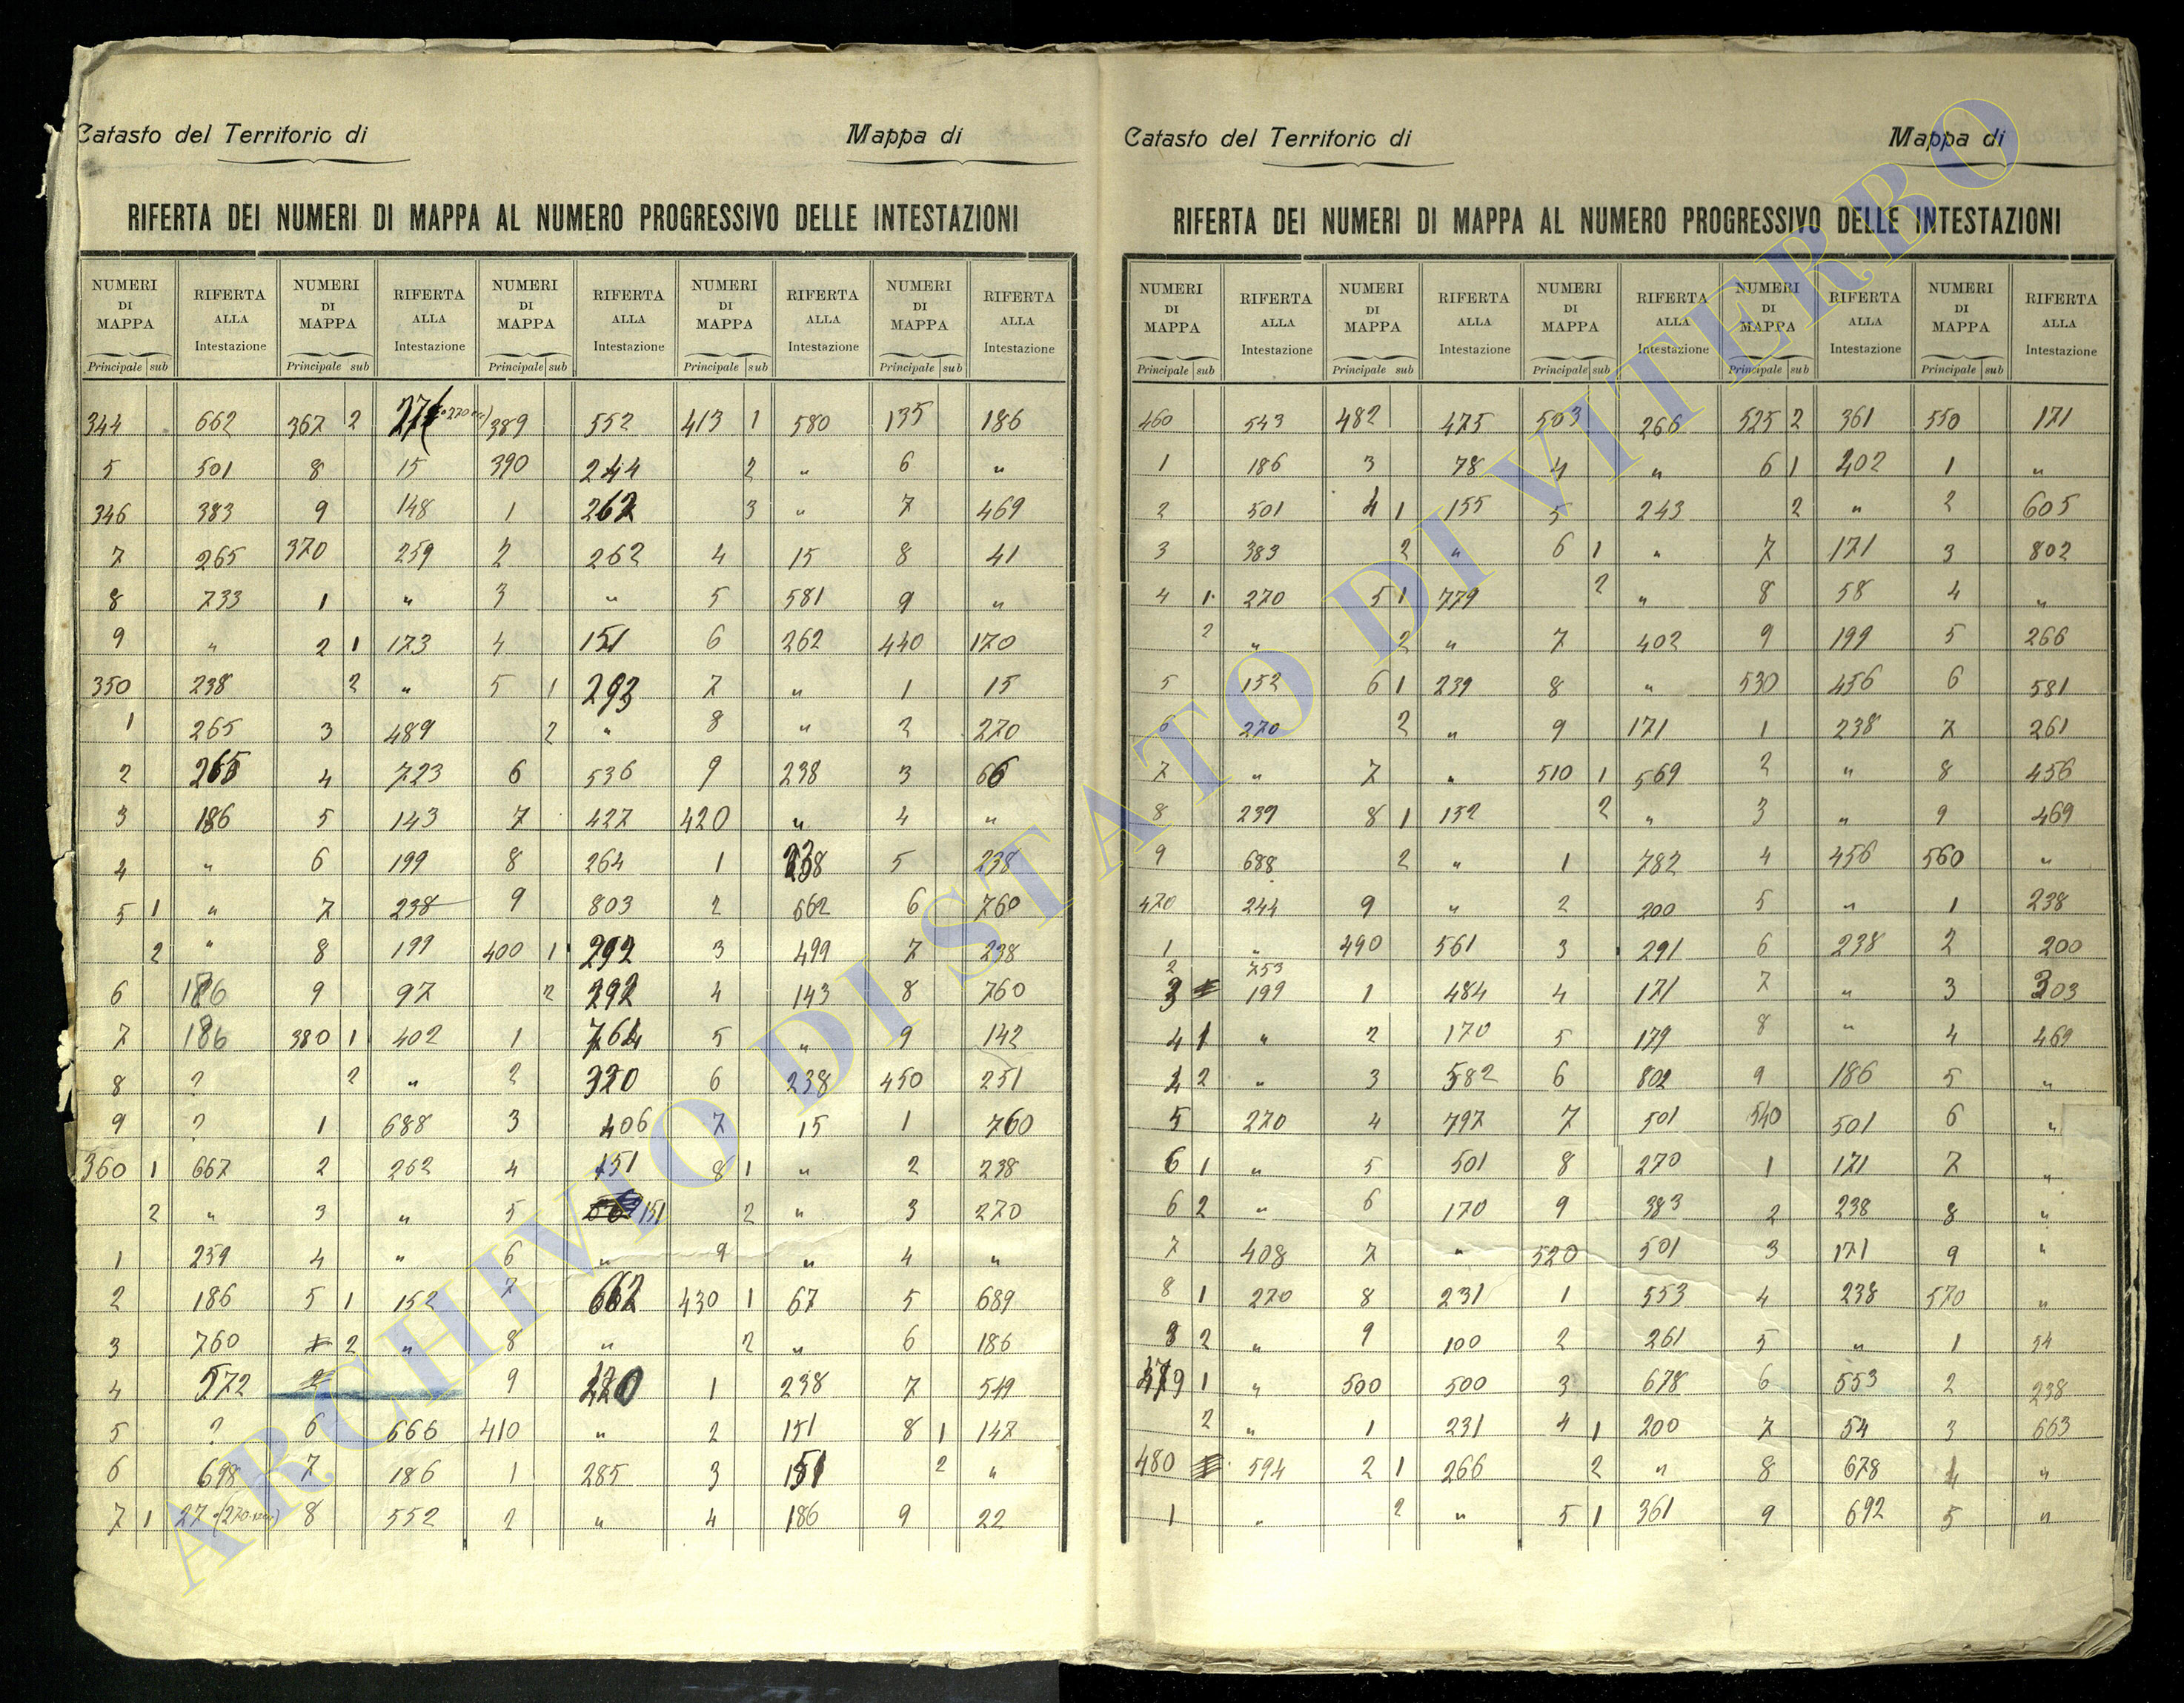 Catasto del Territorio di Mappa di
RIFERTA DEI NUMERI DI MAPPA AL NUMERO PROGRESSIVO DELLE INTESTAZIONI
NUMERI DI MAPPA RIFERTA ALLA Intestazione NUMERI DI MAPPA RIFERTA ALLA Intestazione NUMERI DI MAPPA RIFERTA ALLA Intestazione NUMERI DI MAPPA RIFERTA ALLA Intestazione NUMERI DI MAPPA RIFERTA ALLA Intestazione
Principale sub Principale sub Principale sub Principale sub Principale sub
344 662 367 2 389 552 413 1 580 135 186
5 501 8 15 390 244 2 " 6 "
346 383 9 148 1 262 3 " 7 469
7 265 370 259 2 262 4 15 8 41
8 733 1 " 3 " 5 581 9 "
9 " 2 1 173 4 151 6 262 440 170
350 238 2 " 5 1 293 7 " 1 15
1 265 3 489 2 " 8 " 2 270
2 265 4 723 6 536 9 238 3 66
3 186 5 143 7 427 420 " 4 "
4 " 6 199 8 264 1 238 5 238
5 1 " 7 238 9 803 2 662 6 760
2 " 8 199 400 1 292 3 499 7 238
6 186 9 97 2 292 4 143 8 760
7 186 380 1 402 1 764 5 " 9 142
8 ? 2 " 2 320 6 238 450 251
9 ? 1 688 3 406 7 15 1 760
360 1 667 2 262 4 151 8 1 " 2 238
2 " 3 " 5 151 2 " 3 270
1 259 4 " 6 " 9 " 4 "
2 186 5 1 152 7 662 430 1 67 5 689
3 760 2 " 8 " 2 " 6 186
4 572 9 1 238 7 549
5 ? 6 666 410 " 2 151 8 1 147
6 698 7 186 1 285 3 151 2 "
7 1 27 8 552 2 " 4 186 9 22
Catasto del Territorio di Mappa di
RIFERTA DEI NUMERI DI MAPPA AL NUMERO PROGRESSIVO DELLE INTESTAZIONI
NUMERI DI MAPPA RIFERTA ALLA Intestazione NUMERI DI MAPPA RIFERTA ALLA Intestazione NUMERI DI MAPPA RIFERTA ALLA Intestazione NUMERI DI MAPPA RIFERTA ALLA Intestazione NUMERI DI MAPPA RIFERTA ALLA Intestazione
Principale sub Principale sub Principale sub Principale sub Principale sub
460 543 482 475 503 266 525 2 361 550 171
1 186 3 78 4 " 6 1 202 1 "
2 501 4 1 155 5 243 2 " 2 605
3 383 2 " 6 1 " 7 171 3 802
4 1 270 5 1 779 2 " 8 58 4 "
2 " 2 " 7 402 9 199 5 266
5 152 6 1 239 8 " 530 456 6 581
6 270 2 " 9 171 1 238 7 261
7 " 7 " 510 1 569 2 " 8 456
8 239 8 1 152 2 " 3 " 9 469
9 688 2 " 1 782 4 456 560 "
470 244 9 " 2 200 5 " 1 238
1 " 490 561 3 291 6 238 2 200
2 753
3 199 1 484 4 171 7 " 3 303
4 1 " 2 170 5 179 8 " 4 469
4 2 " 3 582 6 802 9 186 5 "
5 270 4 797 7 501 540 501 6 "
6 1 " 5 501 8 270 1 171 7 "
6 2 " 6 170 9 383 2 238 8 "
7 408 7 " 520 501 3 171 9 "
8 1 270 8 231 1 553 4 238 570 "
8 2 " 9 100 2 261 5 " 1 54
479 1 " 500 500 3 678 6 553 2 238
2 " 1 231 4 1 200 7 54 3 663
480 594 2 1 266 2 " 8 678 4 "
1 " 2 " 5 1 361 9 692 5 "
ARCHIVIO DI STATO DI VITERBO